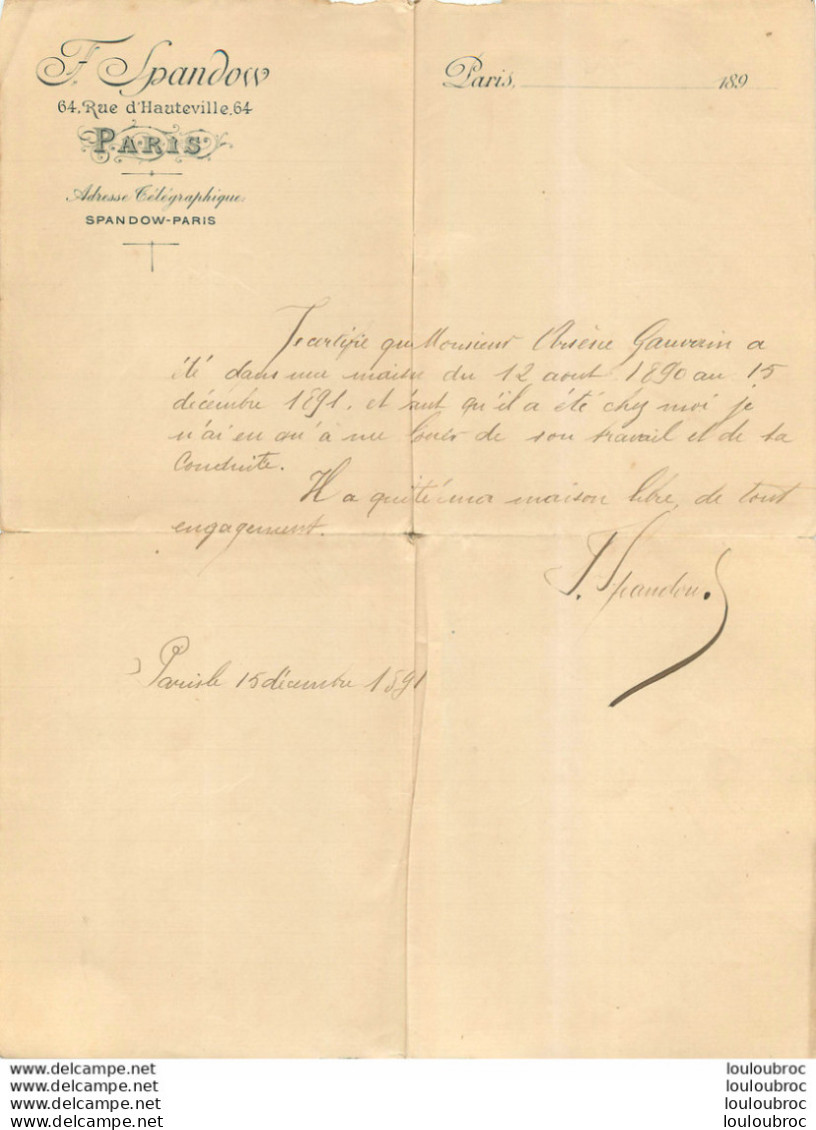 F. Spandow
64, Rue d'Hauteville, 64
PARIS
Adresse Télégraphique,
SPANDOW-PARIS
Paris, 189
Je certifie que Monsieur Arsène Gauvain a
été dans ma maison du 12 aout 1890 au 15
décembre 1891. et tant qu'il a été chez moi je
n'ai eu qu'à me louer de son travail et de sa
conduite.
Il a quité ma maison libre de tout
engagement.
F. Spandow.
Paris le 15 décembre 1891
www.delcampe.net
www.delcampe.net
www.delcampe.net
www.delcampe.net
louloubroc
louloubroc
louloubroc
louloubroc